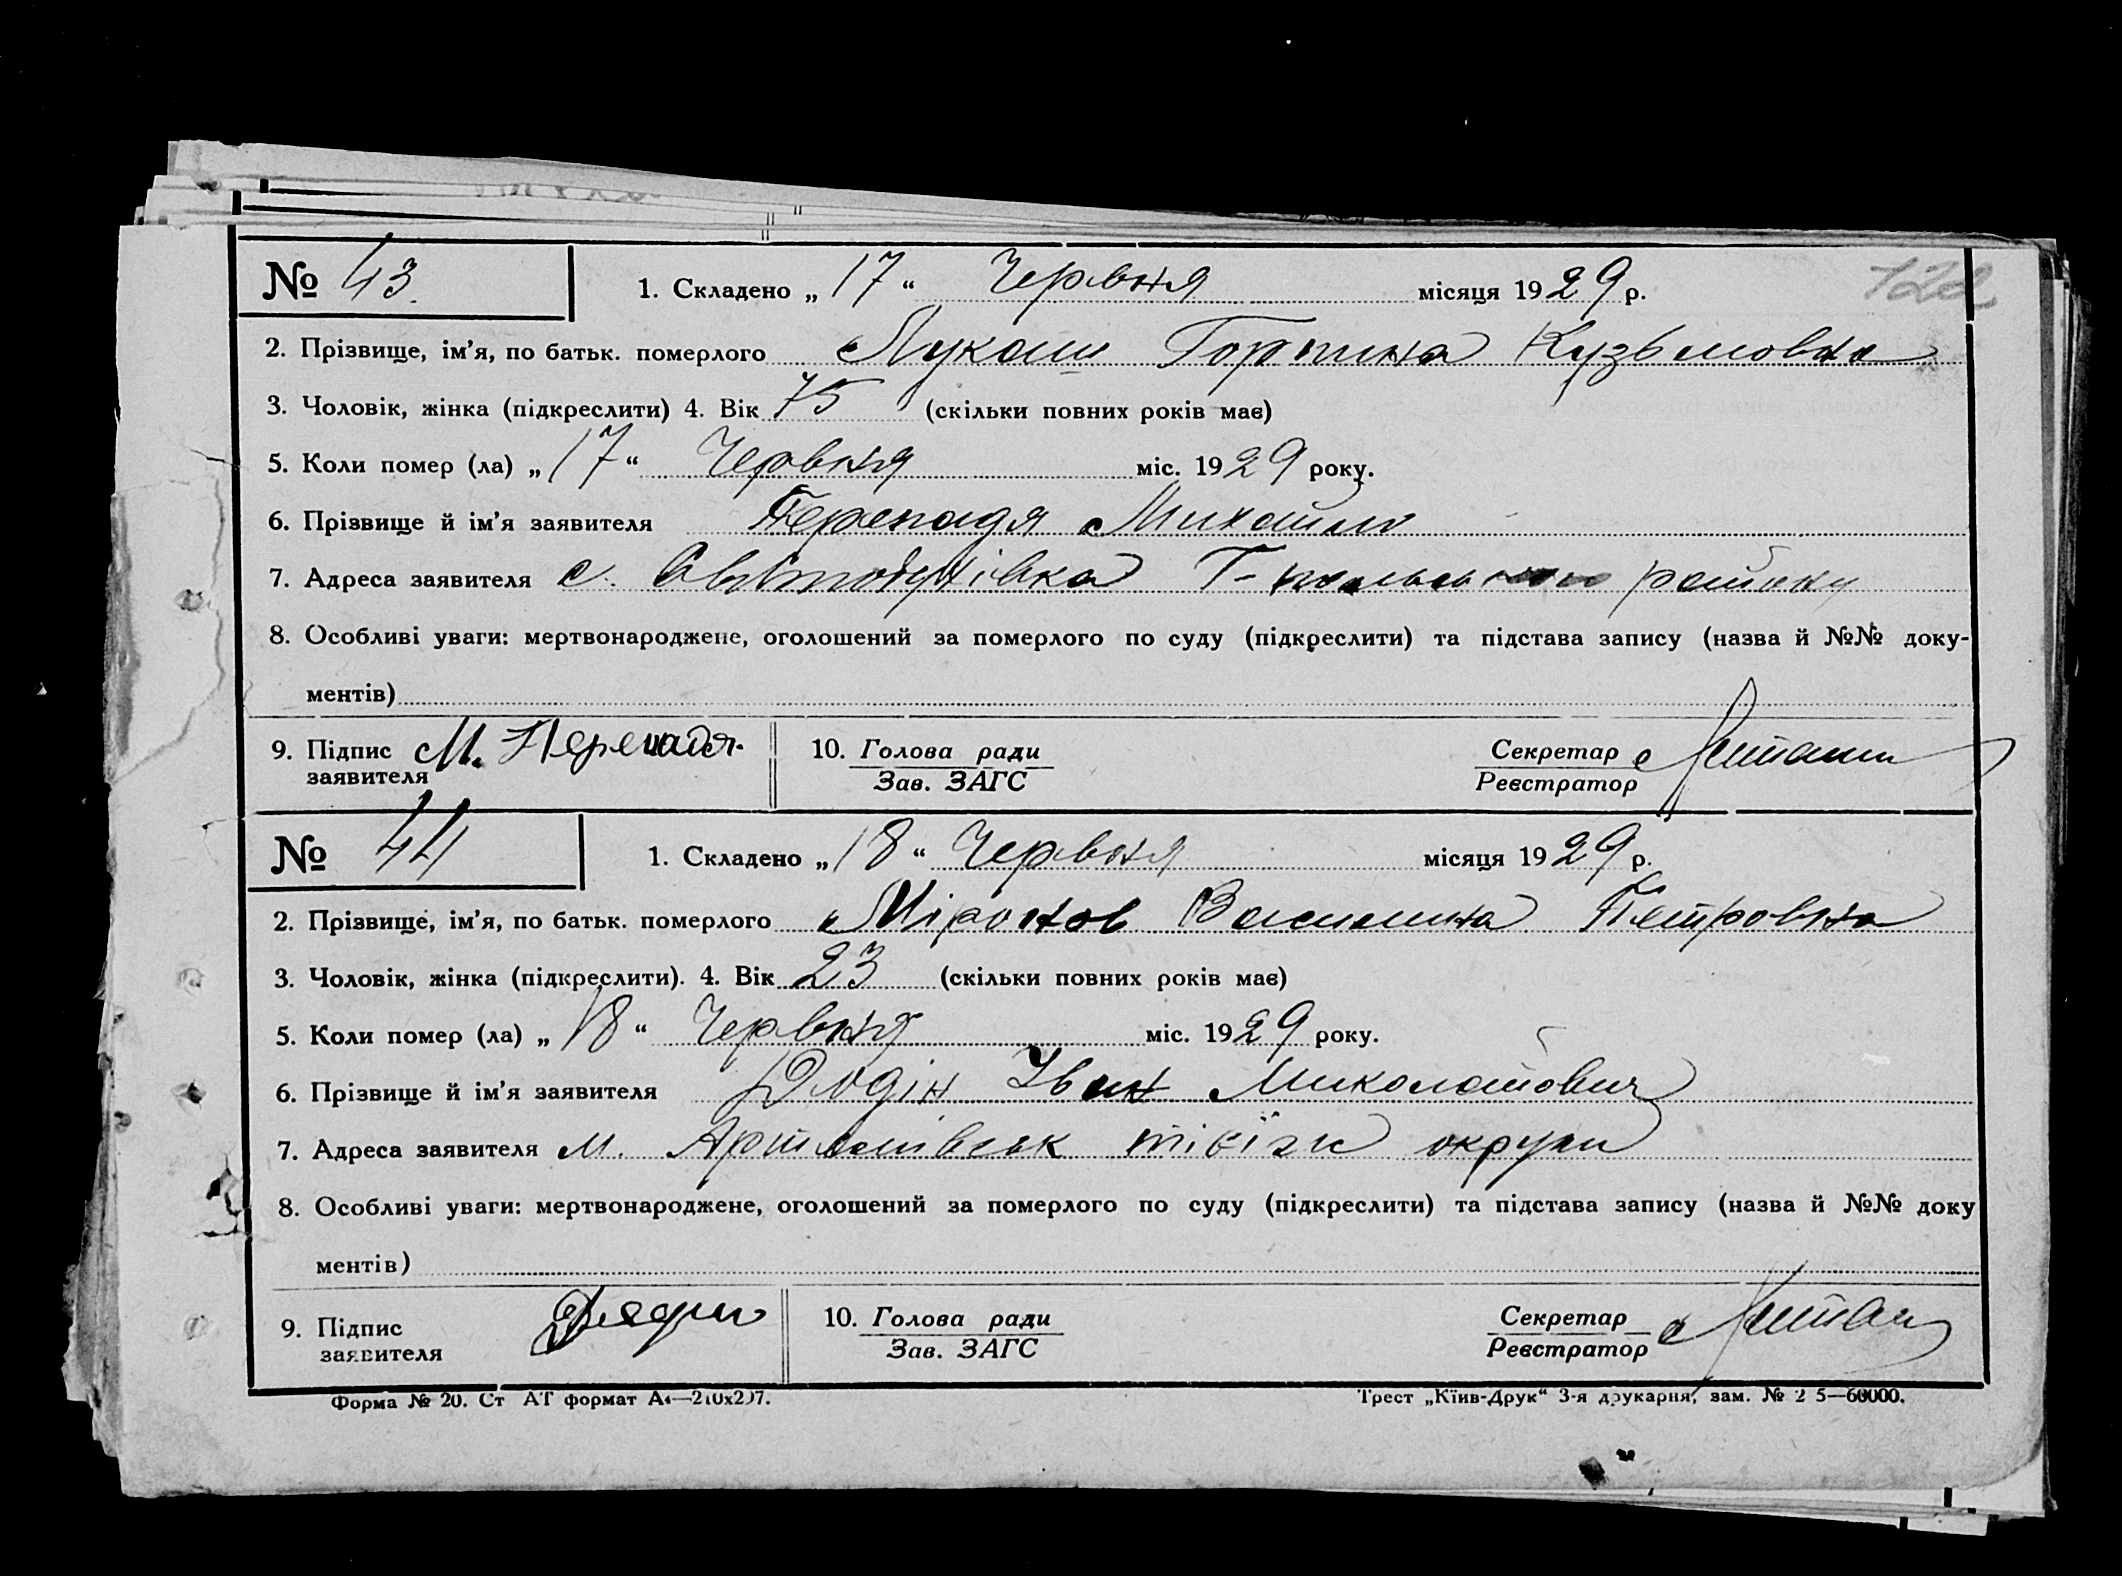 122
№ 43. 1. Складено „17“ Червня місяця 1929 р.
2. Прізвище, ім’я, по батьк. померлого Лукаш Горпина Кузьмовна
3. Чоловік, жінка (підкреслити) 4. Вік 75 (скільки повних років має)
5. Коли помер (ла) „17“ Червня міс. 1929 року.
6. Прізвище й ім’я заявителя Перепадя Михайло
7. Адреса заявителя с. району
8. Особливі уваги: мертвонароджене, оголошений за померлого по суду (підкреслити) та підстава запису (назва й №№ доку-
ментів)
9. Підпис М. Перепадя. 10. Голова ради Секретар
заявителя Зав. ЗАГС Реєстратор
№ 44 1. Складено „18“ Червня місяця 1929 р.
2. Прізвище, ім’я, по батьк. померлого Міронов Василина Петровна
3. Чоловік, жінка (підкреслити). 4. Вік 23 (скільки повних років має)
5. Коли помер (ла) „18“ Червня міс. 1929 року.
6. Прізвище й ім’я заявителя Іван Миколайович
7. Адреса заявителя м. Артемівськ округи
8. Особливі уваги: мертвонароджене, оголошений за померлого по суду (підкреслити) та підстава запису (назва й №№ доку
ментів)
9. Підпис 10. Голова ради Секретар
заявителя Зав. ЗАГС Реєстратор
Форма № 20. Ст АТ формат А4—210х297. Трест „Київ-Друк“ 3-я друкарня, зам. № 2 5—60000.